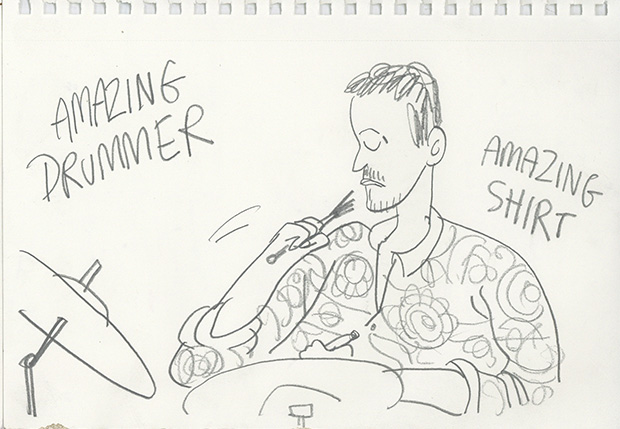 AMAZING
DRUMMER
AMAZING
SHIRT